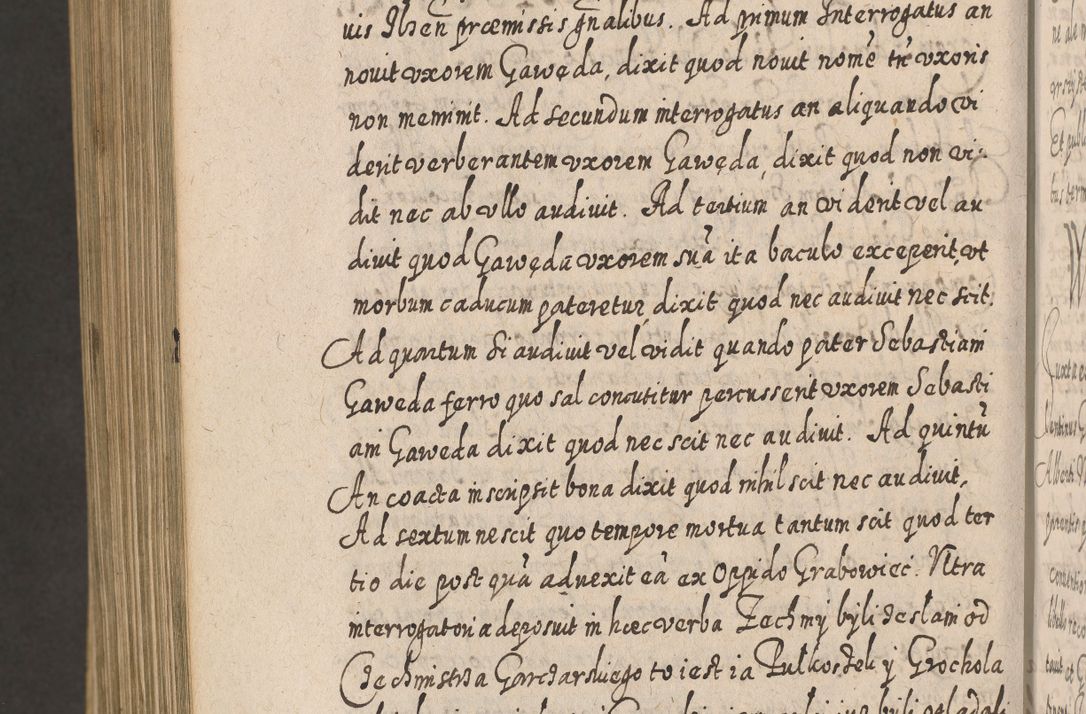 uis Iħen præmissis gñalibus. Ad primum Interrogatus an
nouit vxorem Gawęda, dixit quod nouit nomẽ tñ vxoris
non meminit. Ad secundum interrogatus an aliquando vi
derit verberantem vxorem Gawęda, dixit quod non vi-
dit nec ab vllo audiuit. Ad tertium an viderit vel au
diuit quod Gawęda vxorem suã ita baculo exceperit, vt
morbum caducum pateretur, dixit quod nec audiuit nec scit.
Ad quartum Si audiuit vel vidit quando pater Sebastiani
Gaweda ferro quo sal concutitur percusserit vxorem Sebasti
ani Gaweda dixit quod nec scit nec audiuit. Ad quintũ
An coacta inscripsit bona dixit quod nihil scit nec audiuit,
Ad sextum nescit quo tempore mortua tantum scit quod ter
tio die post quã aduexit eã ex Oppido Grabowiec. Vltra
interrogatoria deposuit in hæc verba Zechmy byli zesłani od
Cechmistrza Garczarskiego to iest ia Pułkoszek y Grochola